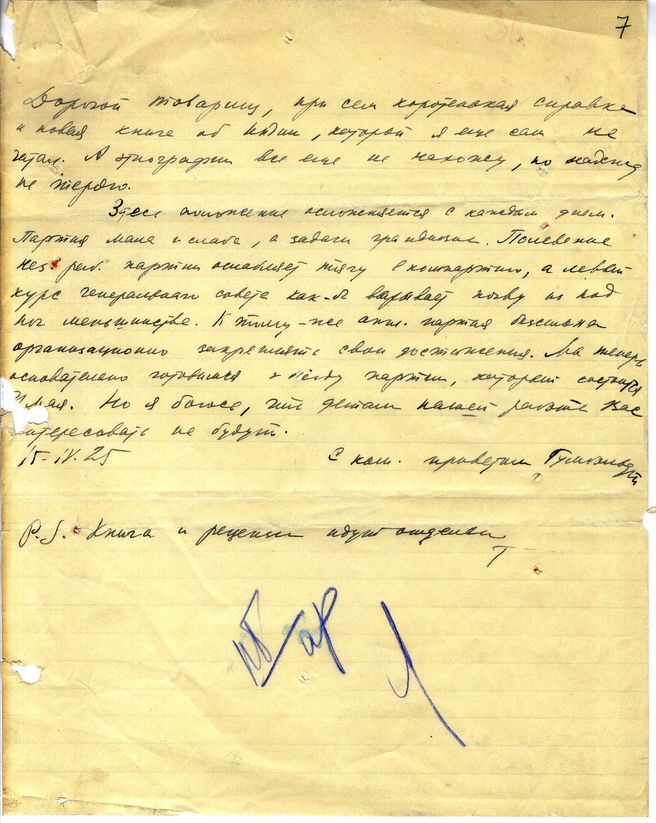 7
Дорогой товарищ, при сем коротенькая справка
и новая книга об Индии, которой я еще сам не
читал. А этнографии все еще не нахожу, но надежд
не теряю.
Здесь положение осложняется с каждым днем.
Партия мала и слаба, а задачи грандиозны. Полевение
нез. раб. партии ослабляет тягу в компартию, а левый
курс генерального совета как-бы вырывает почву из под
ног меньшинства. К тому-же англ. партия бессильна
организационно закреплять свои достижения. Мы теперь
основательно готовимся к съезду партии, который состоится
мая. Но я боюсь, что детали нашей работы Вас
интересовать не будут.
15-IV.25 С ком. приветом
P.S. Книга и рецензии идут отдельно
Т